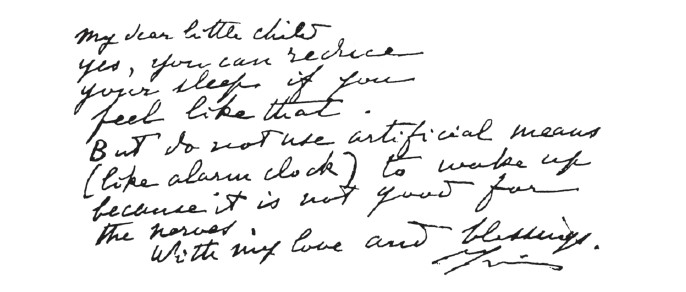 My dear little child
yes, you can reduce
your sleep if you
feel like that.
But do not use artificial means
(like alarm clock) to wake up
because it is not good for
the nerves.
With my love and blessings.